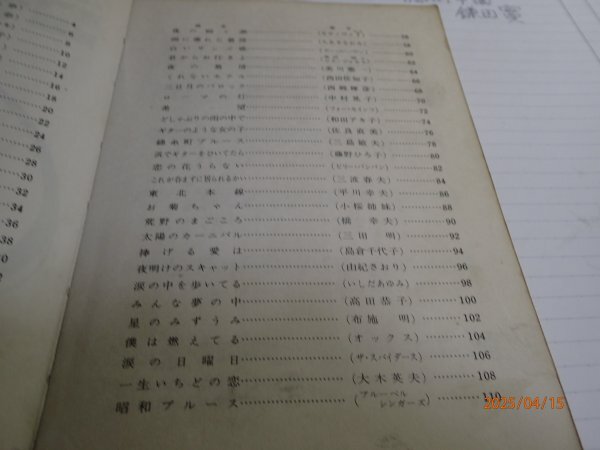 4
6
8
10
12
14
16
18
20
22
24
26
28
30
32
34
36
38
40
鎌田蜜
くれないホテル (西田佐知子) 68
三日月のバロック (西郷輝彦) 70
ローマの灯 (中村晃子) 72
希望 (フォーセインツ) 74
どしゃぶりの雨の中で (和田アキ子) 76
ギターのような女の子 (佐良直美) 78
錦糸町ブルース (三島敏夫) 80
涙でギターをひいてたら (藤野ひろ子) 82
恋の花うらない (ビリー・バンバン)
これが呑まずに居られるかい (三波春夫) 84
東北本線 (平川幸夫) 86
お菊ちゃん (小桜姉妹) 88
荒野のまごころ (橋幸夫) 90
太陽のカーニバル (三田明) 92
捧げる愛は (島倉千代子) 94
夜明けのスキャット (由紀さおり) 96
涙の中を歩いてる (いしだあゆみ) 98
みんな夢の中 (高田恭子) 100
星のみずうみ (布施明) 102
僕は燃えてる (オックス) 104
涙の日曜日 (ザ・スパイダース) 106
一生いちどの恋 (大木英夫) 108
昭和ブルース (ブルーベル・シンガーズ) 110
2025/04/15